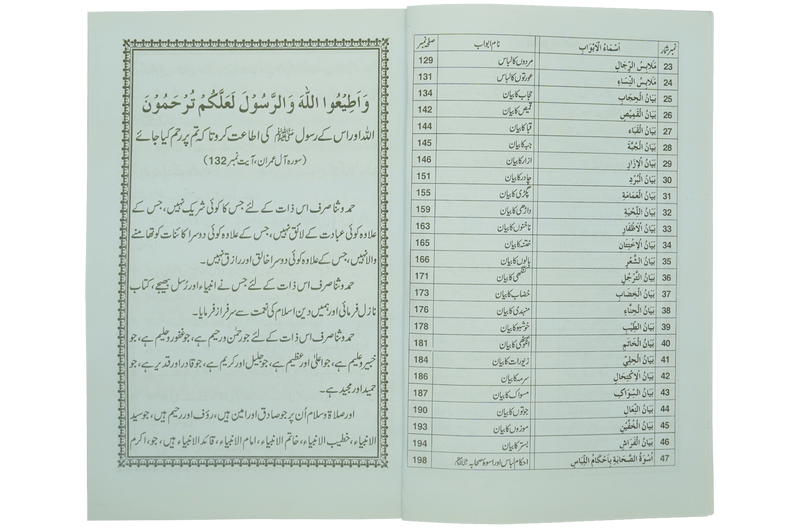 نمبر شمار اَسْمَاءُ الْاَبْوَابِ نام ابواب صفحہ نمبر
23 مَلَابِسُ الرِّجَالِ مردوں کا لباس 129
24 مَلَابِسُ النِّسَاءِ عورتوں کا لباس 131
25 بَيَانُ الْحِجَابِ حجاب کا بیان 134
26 بَيَانُ الْقَمِيْصِ قمیص کا بیان 142
27 بَيَانُ الْقَبَاءِ قبا کا بیان 144
28 بَيَانُ الْجُبَّةِ جبہ کا بیان 145
29 بَيَانُ الْاِزَارِ ازار کا بیان 146
30 بَيَانُ الْبُرْدِ چادر کا بیان 151
31 بَيَانُ الْعِمَامَةِ پگڑی کا بیان 155
32 بَيَانُ اللِّحْيَةِ داڑھی کا بیان 159
33 بَيَانُ الْاَظْفَارِ ناخنوں کا بیان 163
34 بَيَانُ الْاِخْتِتَانِ ختنہ کا بیان 165
35 بَيَانُ الشَّعْرِ بالوں کا بیان 166
36 بَيَانُ التَّرَجُّلِ کنگھی کا بیان 171
37 بَيَانُ الْخِضَابِ خضاب کا بیان 173
38 بَيَانُ الْحِنَّاءِ مہندی کا بیان 176
39 بَيَانُ الطِّيْبِ خوشبو کا بیان 178
40 بَيَانُ الْخَاتَمِ انگوٹھی کا بیان 181
41 بَيَانُ الْحِلِيِّ زیورات کا بیان 184
42 بَيَانُ الْاِكْتِحَالِ سرمہ کا بیان 186
43 بَيَانُ السِّوَاكِ مسواک کا بیان 187
44 بَيَانُ النِّعَالِ جوتوں کا بیان 190
45 بَيَانُ الْخُفَّيْنِ موزوں کا بیان 193
46 بَيَانُ الْفِرَاشِ بستر کا بیان 194
47 اُسْوَةُ الصَّحَابَةِ بِاَحْكَامِ اللِّبَاسِ احکام لباس اور اسوۂ صحابہ 198
وَاَطِيْعُوا اللّٰهَ وَالرَّسُوْلَ لَعَلَّكُمْ تُرْحَمُوْنَ
اللہ اور اس کے رسول ﷺ کی اطاعت کرو تاکہ تم پر رحم کیا جائے
(سورہ آل عمران، آیت نمبر 132)
حمد و ثنا صرف اس ذات کے لئے جس کا کوئی شریک نہیں، جس کے
علاوہ کوئی عبادت کے لائق نہیں، جس کے علاوہ کوئی دوسرا کائنات کو تھامنے
والا نہیں، جس کے علاوہ کوئی دوسرا خالق اور رازق نہیں۔
حمد و ثنا صرف اس ذات کے لئے جس نے انبیاء اور رُسل بھیجے، کتاب
نازل فرمائی اور ہمیں دین اسلام کی نعمت سے سرفراز فرمایا۔
حمد و ثنا صرف اس ذات کے لئے جو رحمٰن و رحیم ہے، جو غفور و حلیم ہے، جو
خبیر و علیم ہے، جو اعلیٰ اور عظیم ہے، جو جلیل اور کریم ہے، جو قادر اور قدیر ہے، جو
حمید اور مجید ہے۔
اور صلاۃ و سلام اُن پر جو صادق اور امین ہیں، رؤف اور رحیم ہیں، جو سید
الانبیاء، خطیب الانبیاء، خاتم الانبیاء، امام الانبیاء، قائد الانبیاء ہیں، جو، اکرم